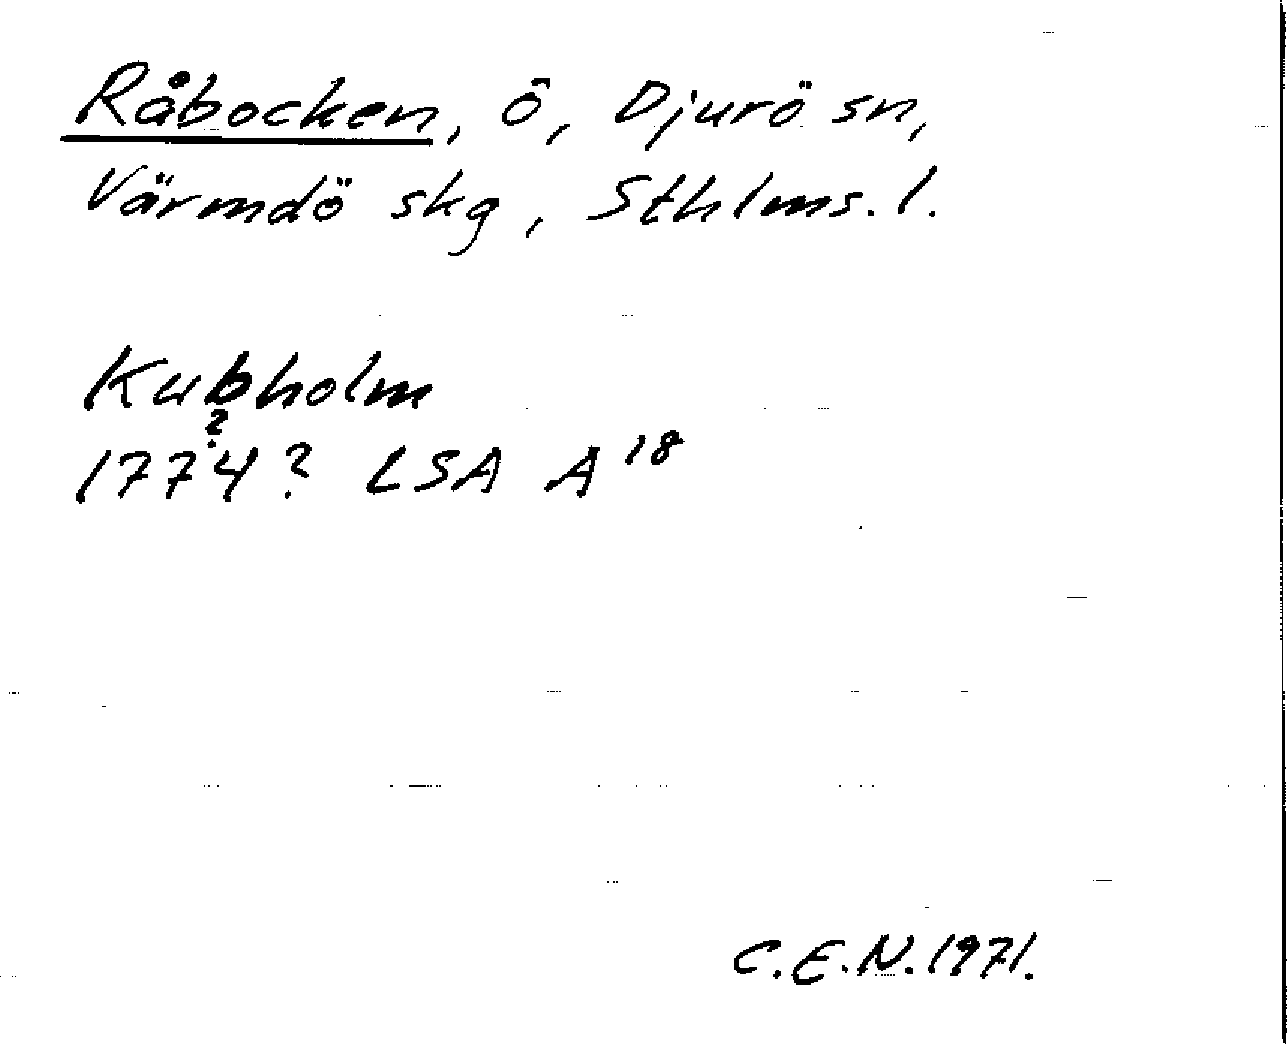 Råbocken, ö, Djurö sn,
Värmdö skg, Sthlms. l.
Kubholm
?
1774? LSA A 18
C.E.N. 1971.